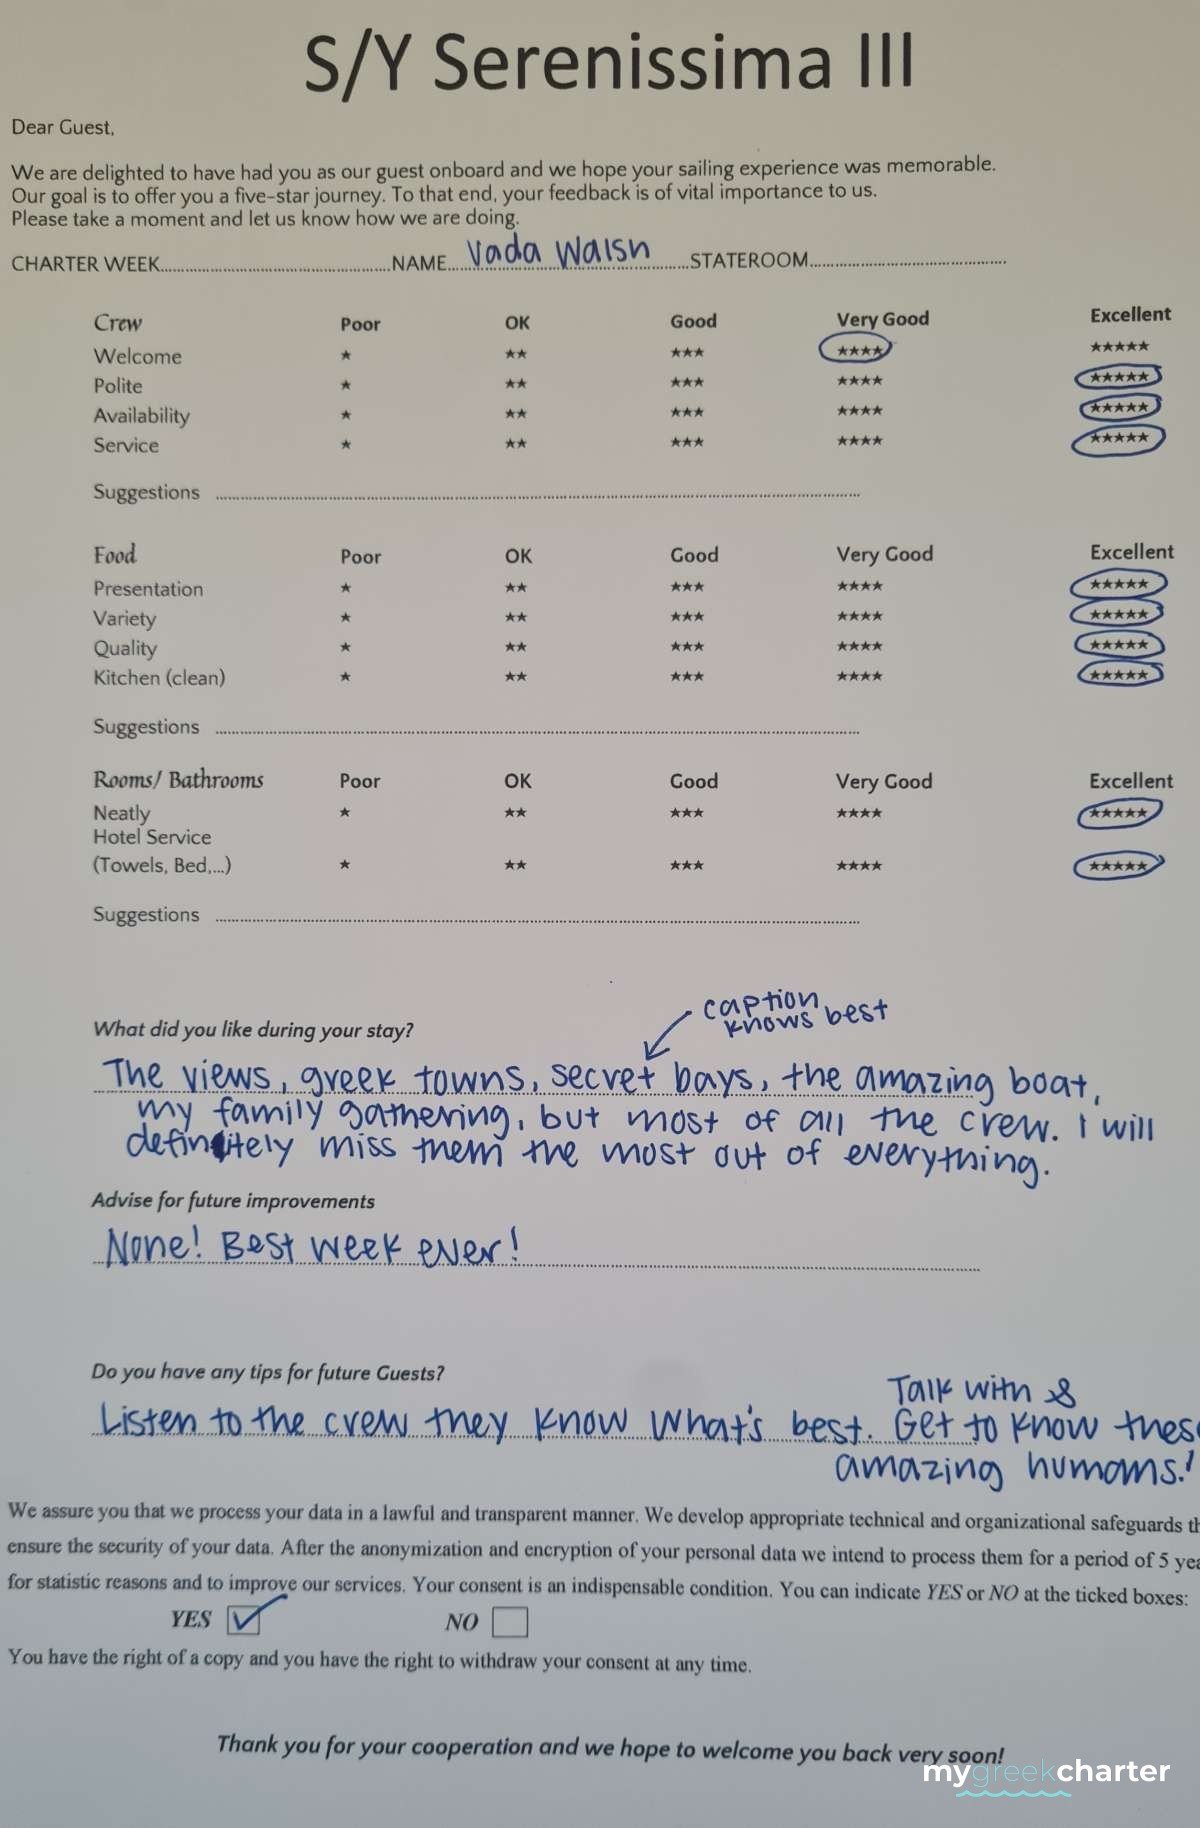 S/Y Serenissima III
Dear Guest,
We are delighted to have had you as our guest onboard and we hope your sailing experience was memorable.
Our goal is to offer you a five-star journey. To that end, your feedback is of vital importance to us.
Please take a moment and let us know how we are doing.
CHARTER WEEK..........NAME..Vada Walsh..........STATEROOM..........
Crew Poor OK Good Very Good Excellent
Welcome ★ ★★ ★★★ ★★★★ ★★★★★
Polite ★ ★★ ★★★ ★★★★ ★★★★★
Availability ★ ★★ ★★★ ★★★★ ★★★★★
Service ★ ★★ ★★★ ★★★★ ★★★★★
Suggestions ..........
Food Poor OK Good Very Good Excellent
Presentation ★ ★★ ★★★ ★★★★ ★★★★★
Variety ★ ★★ ★★★ ★★★★ ★★★★★
Quality ★ ★★ ★★★ ★★★★ ★★★★★
Kitchen (clean) ★ ★★ ★★★ ★★★★ ★★★★★
Suggestions ..........
Rooms/ Bathrooms Poor OK Good Very Good Excellent
Neatly ★ ★★ ★★★ ★★★★ ★★★★★
Hotel Service
(Towels, Bed,...) ★ ★★ ★★★ ★★★★ ★★★★★
Suggestions ..........
caption
knows best
What did you like during your stay?
The views, greek towns, secret bays, the amazing boat,
my family gathering, but most of all the crew. I will
definitely miss them the most out of everything.
Advise for future improvements
None! Best week ever!
Do you have any tips for future Guests?
Talk with &
Listen to the crew they know what's best. Get to know thes
amazing humans!
We assure you that we process your data in a lawful and transparent manner. We develop appropriate technical and organizational safeguards th
ensure the security of your data. After the anonymization and encryption of your personal data we intend to process them for a period of 5 yea
for statistic reasons and to improve our services. Your consent is an indispensable condition. You can indicate YES or NO at the ticked boxes:
YES ☑ NO ☐
You have the right of a copy and you have the right to withdraw your consent at any time.
Thank you for your cooperation and we hope to welcome you back very soon!
mygreekcharter